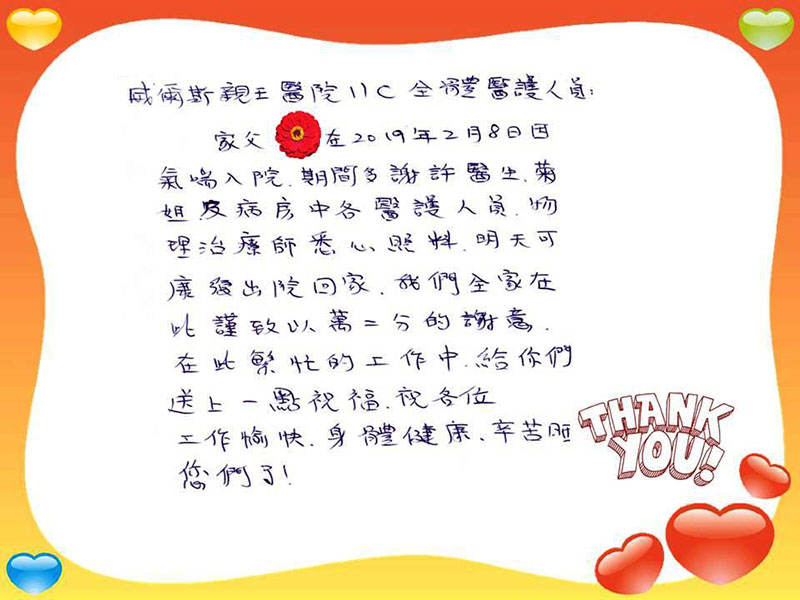 威爾斯親王醫院11C全體醫護人員:
家父 在2019年2月8日因
氣喘入院.期間多謝許醫生.菊
姐及病房中各醫護人員.物
理治療師悉心照料.明天可
康發出院回家.我們全家在
此謹致以萬二分的謝意.
在此繁忙的工作中.給你們
送上一點祝福.祝各位
工作愉快.身體健康、辛苦
您們了!
THANK
YOU!